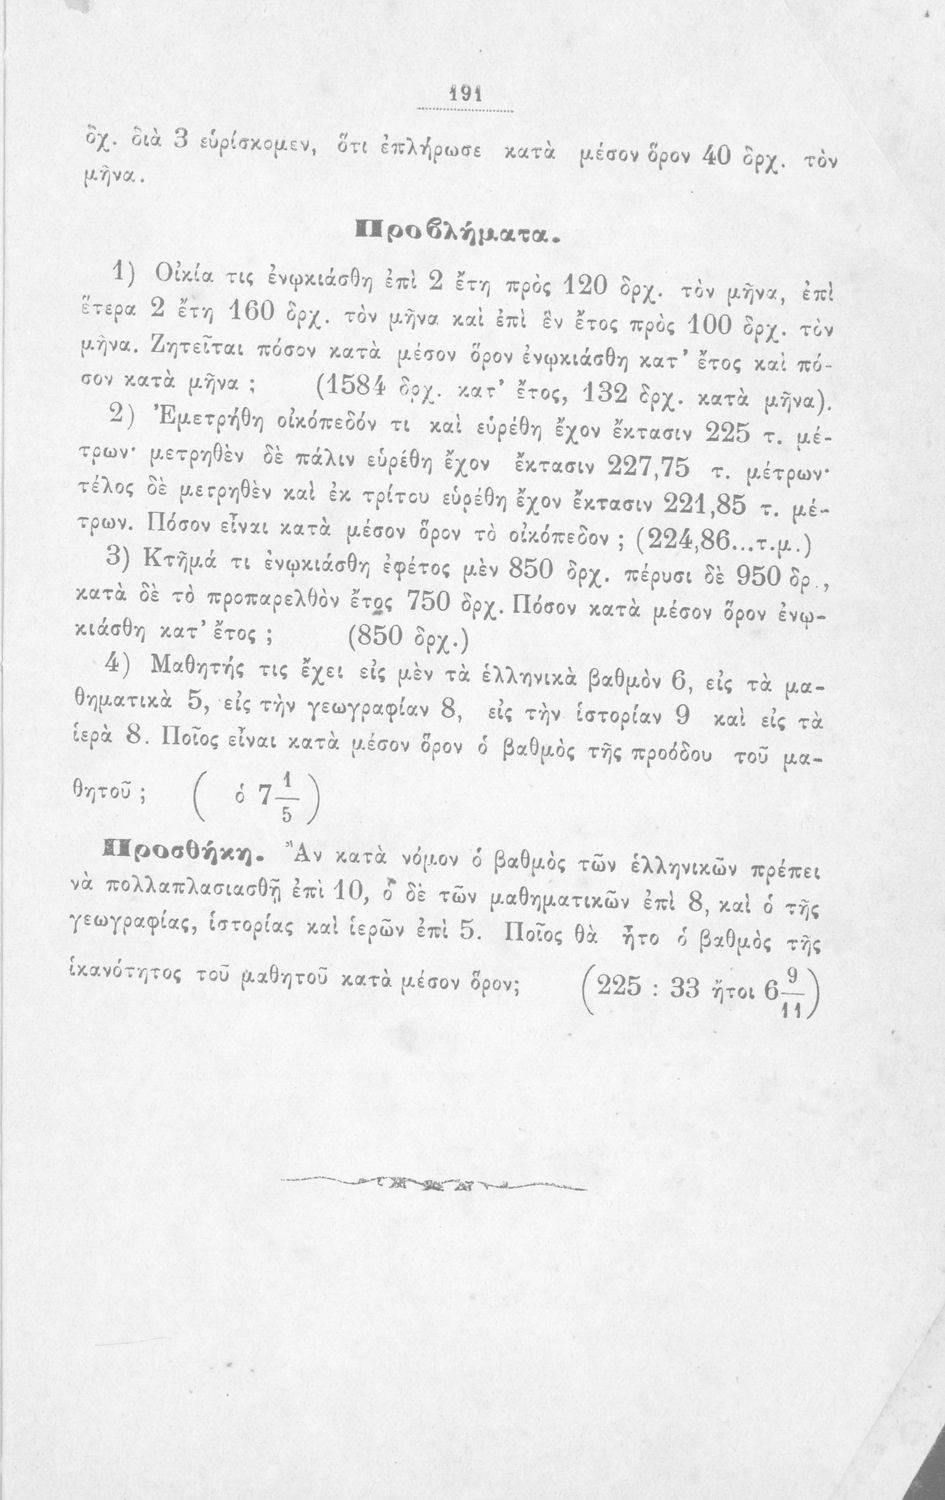 191
δχ. διὰ 3 εὑρίσκομεν, ὅτι ἐπλήρωσε κατὰ μέσον ὅρον 40 δρχ. τὸν
μῆνα.
Προβλήματα.
1) Οἰκία τις ἐνῳκιάσθη ἐπὶ 2 ἔτη πρὸς 120 δρχ. τὸν μῆνα, ἐπὶ
ἕτερα 2 ἔτη 160 δρχ. τὸν μῆνα καὶ ἐπὶ ἓν ἔτος πρὸς 100 δρχ. τὸν
μῆνα. Ζητεῖται πόσον κατὰ μέσον ὅρον ἐνῳκιάσθη κατ' ἔτος καὶ πό-
σον κατὰ μῆνα ; (1584 δρχ. κατ' ἔτος, 132 δρχ. κατὰ μῆνα).
2) Ἐμετρήθη οἰκόπεδόν τι καὶ εὑρέθη ἔχον ἔκτασιν 225 τ. μέ-
τρων· μετρηθὲν δὲ πάλιν εὑρέθη ἔχον ἔκτασιν 227,75 τ. μέτρων·
τέλος δὲ μετρηθὲν καὶ ἐκ τρίτου εὑρέθη ἔχον ἔκτασιν 221,85 τ. μέ-
τρων. Πόσον εἶναι κατὰ μέσον ὅρον τὸ οἰκόπεδον ; (224,86...τ.μ.)
3) Κτῆμά τι ἐνῳκιάσθη ἐφέτος μὲν 850 δρχ. πέρυσι δὲ 950 δρ.,
κατὰ δὲ τὸ προπαρελθὸν ἔτος 750 δρχ. Πόσον κατὰ μέσον ὅρον ἐνῳ-
κιάσθη κατ' ἔτος ; (850 δρχ.)
4) Μαθητής τις ἔχει εἰς μὲν τὰ ἑλληνικὰ βαθμὸν 6, εἰς τὰ μα-
θηματικὰ 5, εἰς τὴν γεωγραφίαν 8, εἰς τὴν ἱστορίαν 9 καὶ εἰς τὰ
ἱερὰ 8. Ποῖος εἶναι κατὰ μέσον ὅρον ὁ βαθμὸς τῆς προόδου τοῦ μα-
θητοῦ ; ( ὁ 7 1/5 )
Προσθήκη. Ἂν κατὰ νόμον ὁ βαθμὸς τῶν ἑλληνικῶν πρέπει
νὰ πολλαπλασιασθῇ ἐπὶ 10, ὁ δὲ τῶν μαθηματικῶν ἐπὶ 8, καὶ ὁ τῆς
γεωγραφίας, ἱστορίας καὶ ἱερῶν ἐπὶ 5. Ποῖος θὰ ἦτο ὁ βαθμὸς τῆς
ἱκανότητος τοῦ μαθητοῦ κατὰ μέσον ὅρον; (225 : 33 ἤτοι 6 9/11)